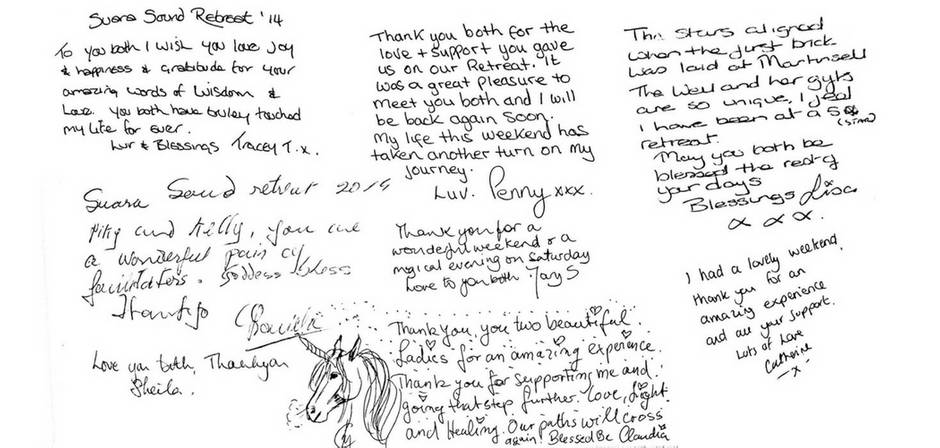 Suara Sound Retreat '14
To you both I wish you love joy
& happiness & gratitude for your
amazing words of wisdom &
Love. You both have truley touched
my life for ever.
Luv & Blessings Tracey T.x.
Suara Sound retreat 2014
and Kelly, you are
a wonderful pair of
facilitators. Goddess bless
Love you both, Thankyou
Sheila.
Thank you both for the
love + support you gave
us on our Retreat. It
was a great pleasure to
meet you both and I will
be back again soon.
My life this weekend has
taken another turn on my
journey.
Luv. Penny xxx.
Thank you for a
wonderful weekend & a
mgical evening on saturday
Love to you both Mary S
Thank you, you two beautiful
Ladies for an amazing experience.
Thank you for supporting me and
going that step further. Love, Light
and Healing. Our paths will cross
again. Blessed Be Claudia
The stars aligned
when the first brick
was laid at
The Well and her gifts
are so unique, I feel
I have been at a 5
(STAR)
retreat.
May you both be
blessed the rest of
your days
Blessings Lisa
x x x.
I had a lovely weekend,
thank you for an
amazing experience
and all your support.
Lots of Love
Catherine
x